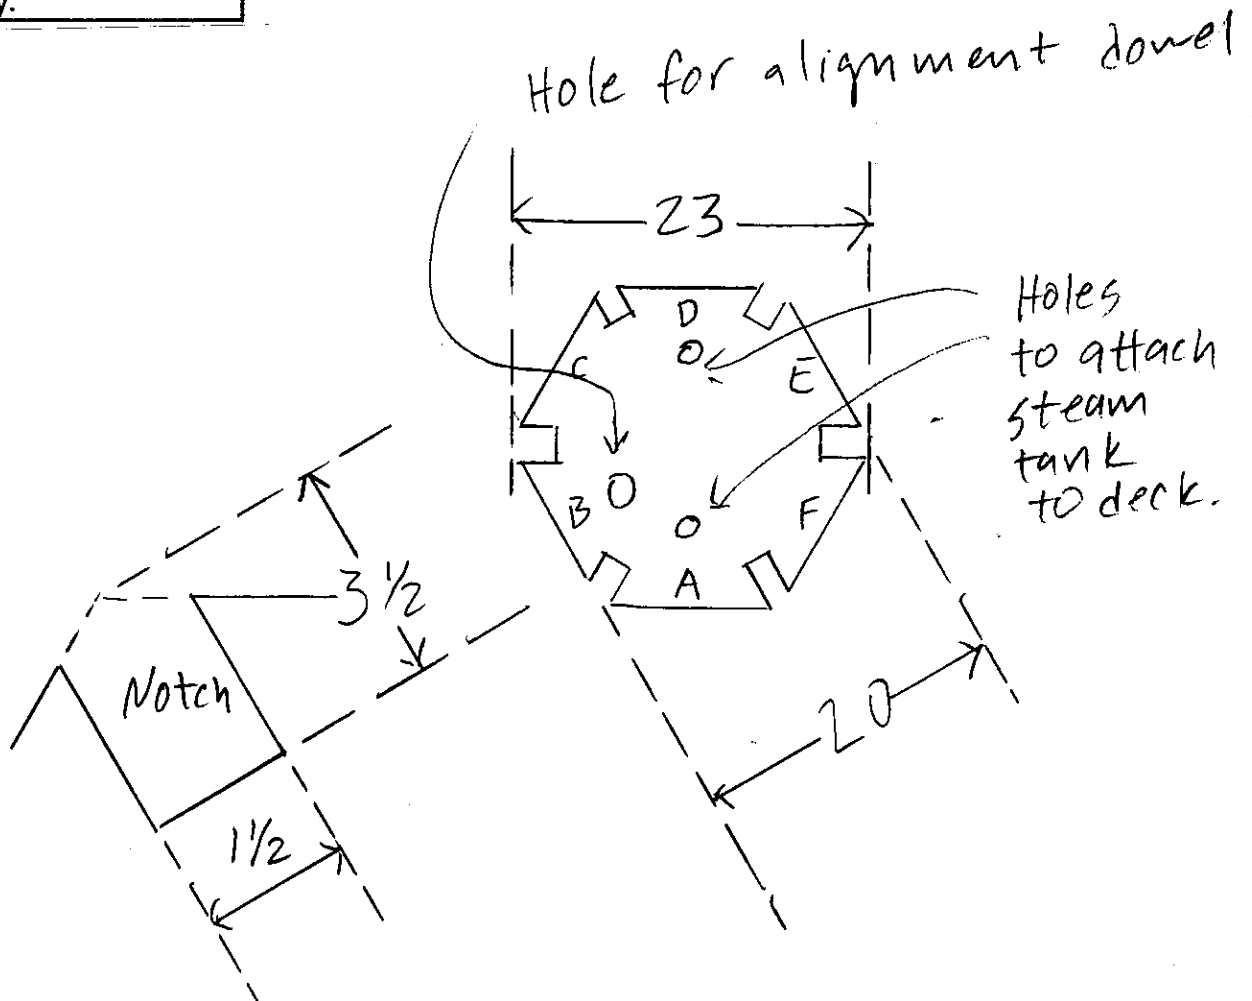 Hole for alignment dowel
23
Holes
to attach
steam
tank
to deck.
D
C
E
B
F
A
3 1/2
Notch
20
1 1/2